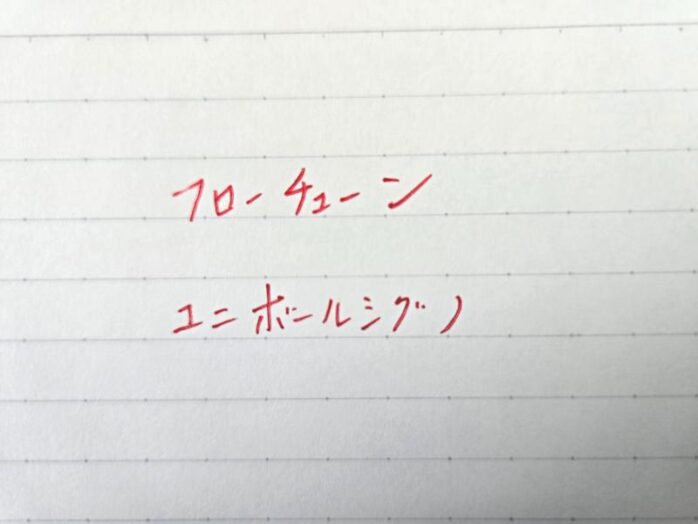 フローチューン
ユニボールシグノ